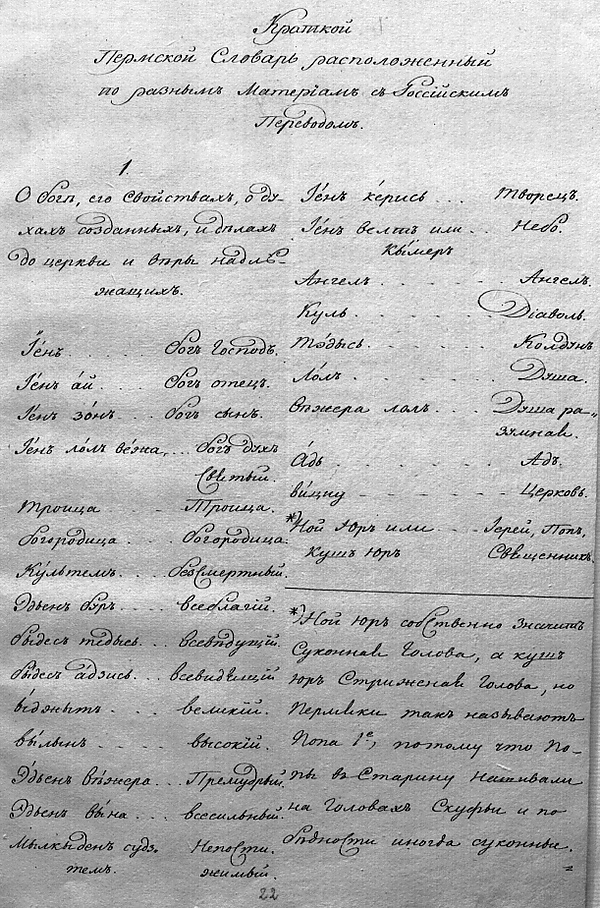 Краткой
Пермской Словарь расположенный
по разнымъ Матерiамъ съ Россiйскимъ
Переводомъ.
1.
О богѣ, его свойствахъ, о ду-
хахъ созданныхъ, и дѣлахъ
до церкви и вѣры надлѣ-
жащихъ.
Iёнъ . . . . . богъ Господь.
Iенъ áй . . . . богъ отецъ.
Iенъ зóнъ . . . богъ сынъ.
Iенъ лóлъ вéжа, . . . богъ духъ
Святый.
Троица . . . . Троица.
богородица . . . богородица.
Кýльтемъ . . . безсмертный.
Эдьенъ буръ . . . всеблагiй.
быдесъ тедысь . . всевѣдущiй.
быдесъ адзись . . . всевидящiй
ыджытъ . . . . великiй.
вы́лынъ . . . . высокiй.
Эдьенъ вѣжера . . . Премудрый.
Эдьенъ вы́на . . . всесильный.
Мылкыденъ судзь- Непости-
темъ. жимый.
Iенъ кéрись . . . Творецъ.
Iенъ велтъ или . . Небо.
Кы́меръ
Ангелъ . . . . . Ангелъ.
Куль . . . . . Дiаволъ.
Тóдысь . . . . . Колдунъ
Лóлъ . . . . . Душа.
вѣжера лолъ . . . Душа ра-
зумная.
áдъ . . . . . Адъ.
ви́цку . . . . . Церковь.
*) Ной Юръ или . . . Iерей, Попъ,
кушъ юръ Священникъ.
*) Ной юръ собственно значитъ
Суконная Голова, а кушъ
юръ Стриженая Голова, но
Пермяки такъ называютъ
Попа 1е, потому что По-
пы въ Старину нашивали
на Головахъ Скуфьи и по
бѣдности иногда суконныя.
22